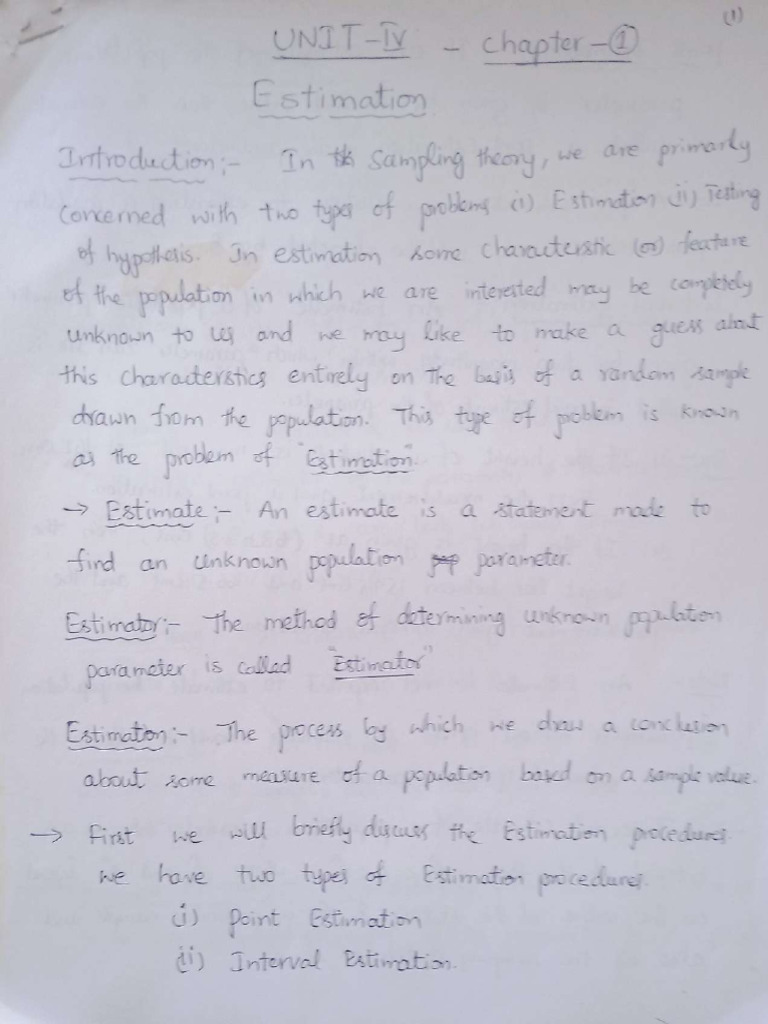 (1)
UNIT-IV - Chapter-①
Estimation
Introduction:- In th Sampling theory, we are primarly
Concerned with two types of problems (i) Estimation (ii) Testing
of hypothesis. In estimation some characterstic (or) feature
of the population in which we are interested may be completely
unknown to us and we may like to make a guess about
this characterstics entirely on the basis of a random sample
drawn from the population. This type of problem is known
as the problem of "Estimation".
→ Estimate:- An estimate is a statement made to
find an unknown population pop parameter.
Estimator:- The method of determining unknown population
parameter is called "Estimator"
Estimation:- The process by which we draw a conclusion
about some measure of a population based on a sample value.
→ First we will briefly discuss the Estimation procedures.
we have two types of Estimation procedures.
(i) Point Estimation
(ii) Interval Estimation.